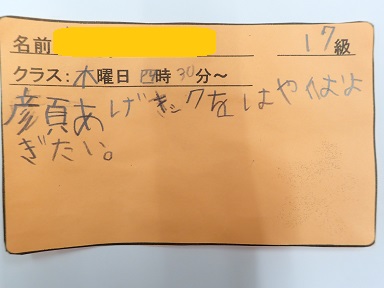 名前 17級
クラス：木曜日 四時30分～
顔あげキック左はやくおよ
ぎたい。